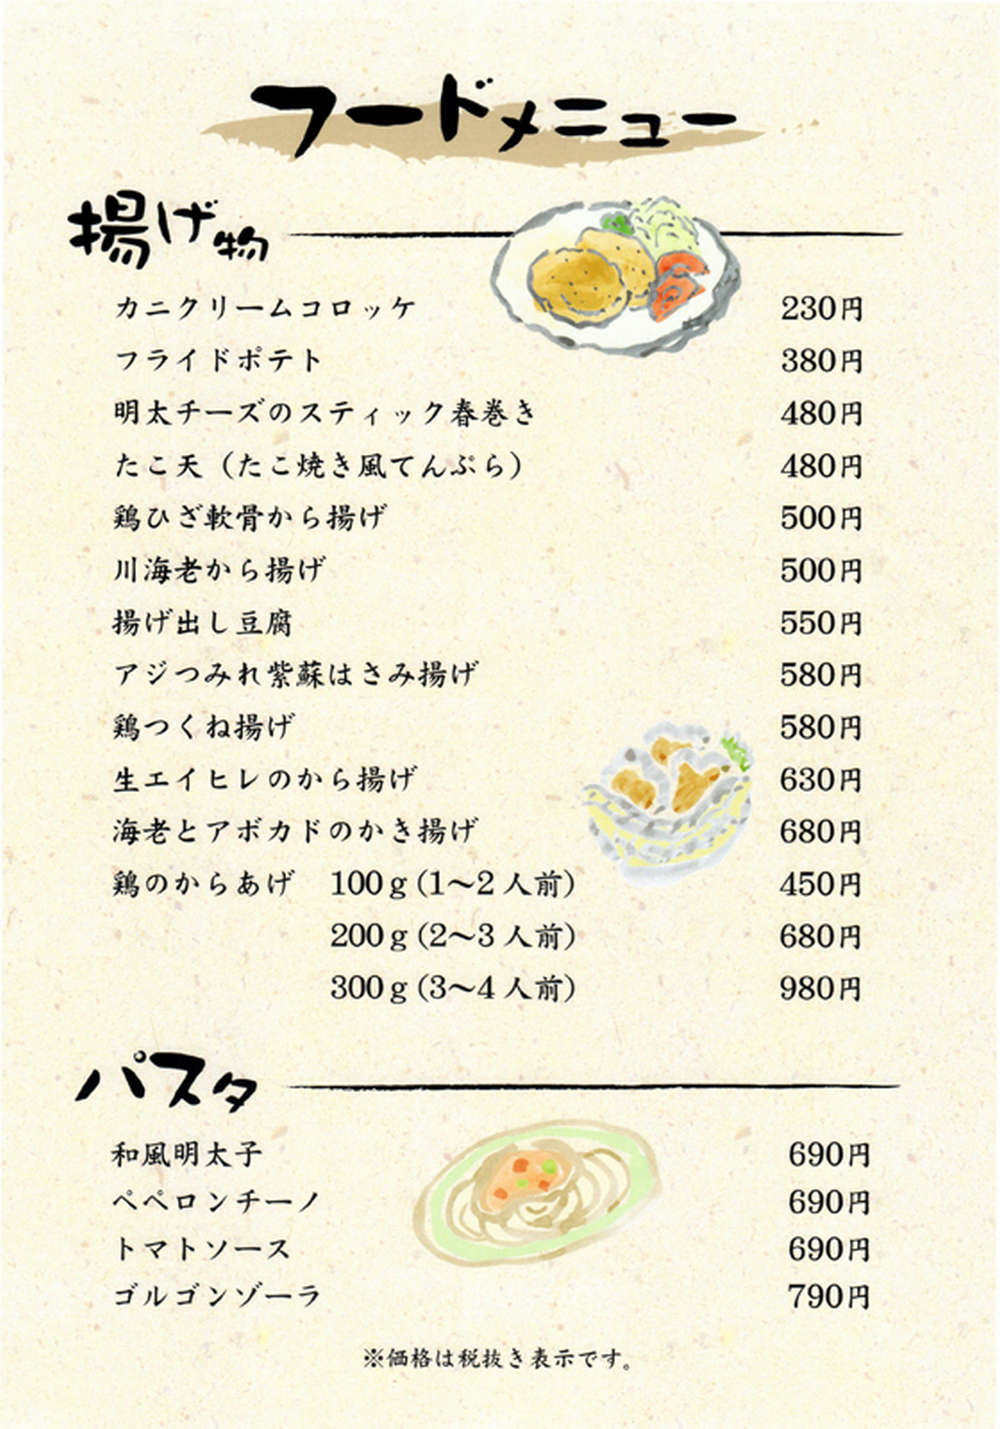 フードメニュー
揚げ物
カニクリームコロッケ 230円
フライドポテト 380円
明太チーズのスティック春巻き 480円
たこ天（たこ焼き風てんぷら） 480円
鶏ひざ軟骨から揚げ 500円
川海老から揚げ 500円
揚げ出し豆腐 550円
アジつみれ紫蘇はさみ揚げ 580円
鶏つくね揚げ 580円
生エイヒレのから揚げ 630円
海老とアボカドのかき揚げ 680円
鶏のからあげ 100ｇ(1〜2 人前) 450円
200ｇ(2〜3 人前) 680円
300ｇ(3〜4 人前) 980円
パスタ
和風明太子 690円
ペペロンチーノ 690円
トマトソース 690円
ゴルゴンゾーラ 790円
※価格は税抜き表示です。